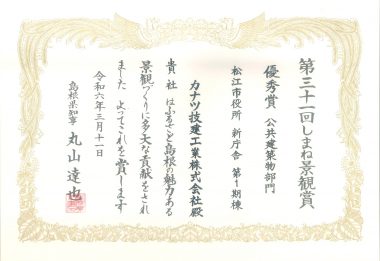 第三十一回しまね景観賞
優秀賞 公共建築物部門
松江市役所 新庁舎 第1期棟
カナツ技建工業株式会社殿
貴社はふるさと島根の魅力ある
景観づくりに多大な貢献をされ
ました よってこれを賞します
令和六年三月十一日
島根県知事 丸山達也